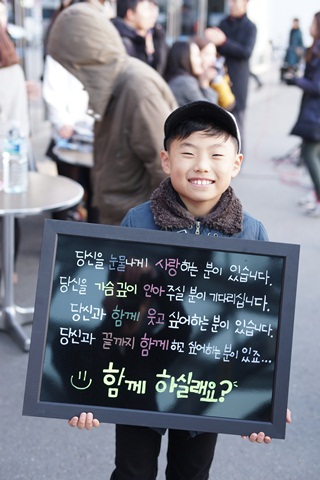 당신을 눈물나게 사랑하는 분이 있습니다.
당신을 가슴깊이 안아 주실 분이 기다립니다.
당신과 함께 웃고 싶어하는 분이 있습니다.
당신과 끝까지 함께하고 싶어하는 분이 있죠...
함께 하실래요?